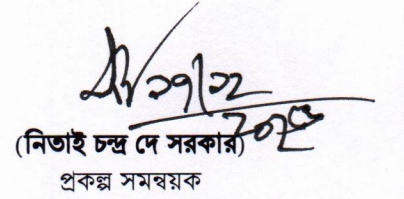 (নিতাই চন্দ্র দে সরকার)
প্রকল্প সমন্বয়ক